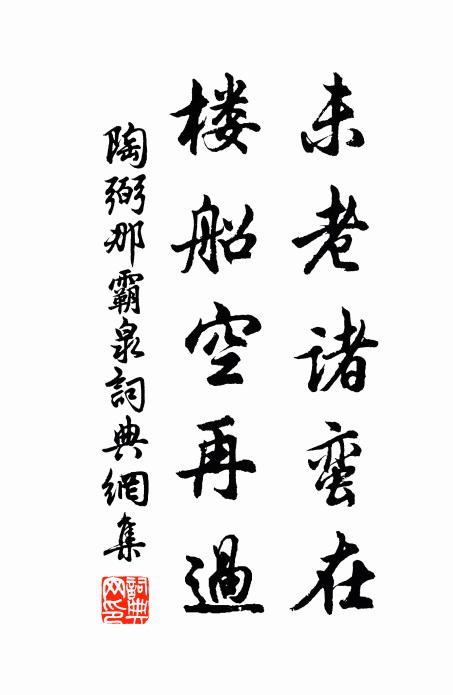 未老諸蛮在
楼船空再過
陶弼那霸泉詞典網集
詞典网印